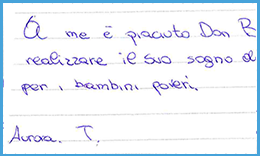 A me è piaciuto Don B
realizzare il suo sogno d
per i bambini poveri.
Aurora. T.